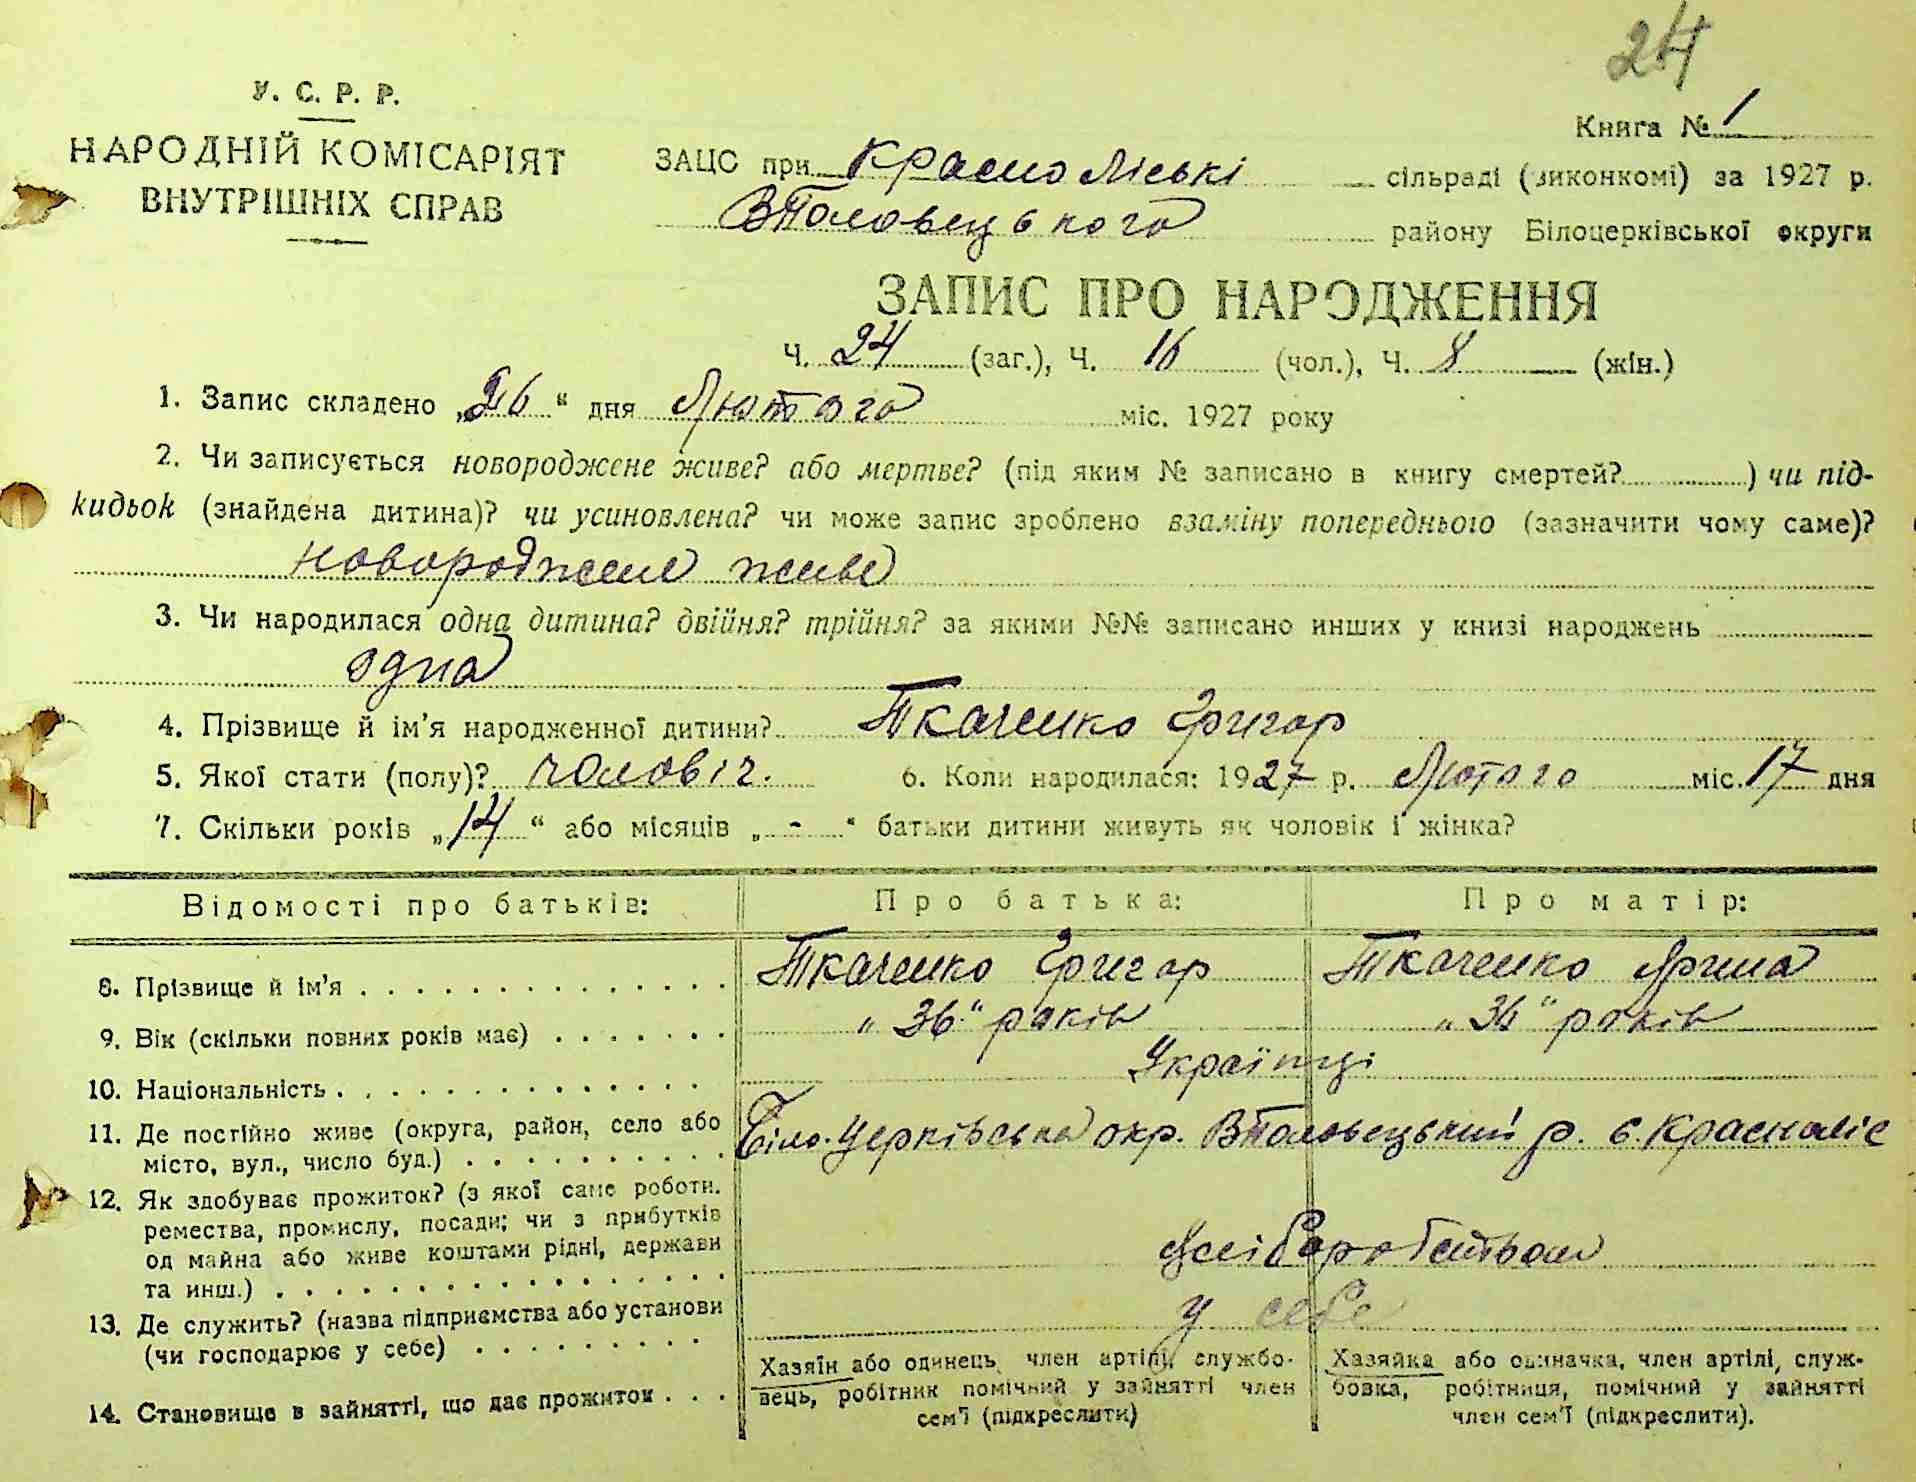 24
У. С. Р. Р.
НАРОДНІЙ КОМІСАРІЯТ
ВНУТРІШНІХ СПРАВ
Книга № 1
ЗАЦС при Красно Ліські сільраді (виконкомі) за 1927 р.
ВПоловецького району Білоцерківської округи
ЗАПИС ПРО НАРОДЖЕННЯ
Ч. 24 (заг.), Ч. 16 (чол.), Ч. 8 (жін.)
1. Запис складено „26“ дня Лютого міс. 1927 року
2. Чи записується новороджене живе? або мертве? (під яким № записано в книгу смертей?) чи під-
кидьок (знайдена дитина)? чи усиновлена? чи може запис зроблено взаміну попереднього (зазначити чому саме)?
новороджене живе
3. Чи народилася одна дитина? двійня? трійня? за якими №№ записано инших у книзі народжень
одна
4. Прізвище й ім'я народженної дитини? Ткаченко Григор
5. Якої стати (полу)? чоловіч. 6. Коли народилася: 1927 р. Лютого міс. 17 дня
7. Скільки років „14“ або місяців „-“ батьки дитини живуть як чоловік і жінка?
Відомості про батьків: Про батька: Про матір:
8. Прізвище й ім'я . . . Ткаченко Григор Ткаченко Ярина
9. Вік (скільки повних років має) . . . „36“ років „34“ років
10. Національність . . . Українці
11. Де постійно живе (округа, район, село або
місто, вул., число буд.) . . . Біло-Церківська окр. ВПоловецький р. с. Красноліс
12. Як здобуває прожиток? (з якої саме роботи,
ремества, промислу, посади; чи з прибутків
од майна або живе коштами рідні, держави
та инш.) . . . Хліборобством
13. Де служить? (назва підприємства або установи
(чи господарює у себе) . . . у себе
14. Становище в зайнятті, що дає прожиток . . .
Хазяїн або одинець, член артілі, службо-
вець, робітник помічний у зайнятті член
сем'ї (підкреслити)
Хазяйка або одиначка, член артілі, служ-
бовка, робітниця, помічний у зайнятті
член сем'ї (підкреслити).